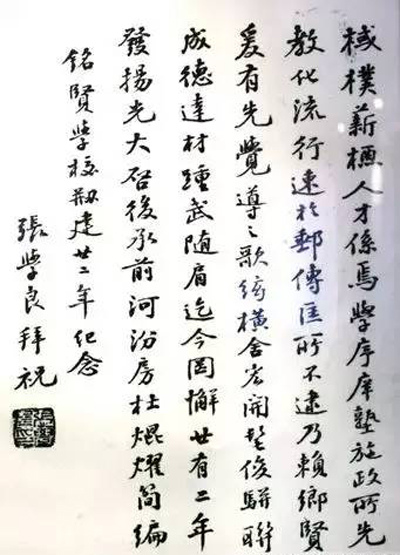 棫樸薪槱人才係焉學序庠塾施政所先
教化流行速於郵傳匡所不逮乃賴鄉賢
爰有先覺導之歌絃橫舍宏開髦俊駢聯
成德達材踵武随肩迄今罔懈廿有二年
發揚光大启後承前河汾房杜焜燿簡編
銘賢學校刱建廿二年紀念
張學良拜祝